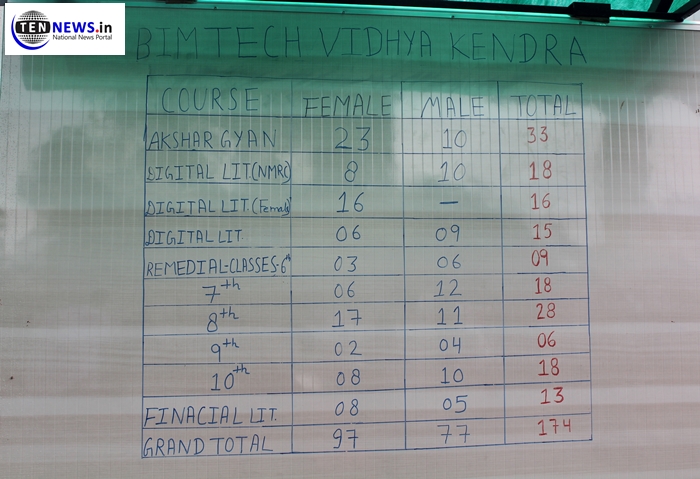 TEN NEWS.in
National News Portal
BIMTECH VIDHYA KENDRA
COURSE FEMALE MALE TOTAL
AKSHAR GYAN 23 10 33
DIGITAL LIT.(NMRC) 8 10 18
DIGITAL LIT.(Female) 16 — 16
DIGITAL LIT 06 09 15
REMEDIAL-CLASSES-6th 03 06 09
7th 06 12 18
8th 17 11 28
9th 02 04 06
10th 08 10 18
FINACIAL LIT. 08 05 13
GRAND TOTAL 97 77 174